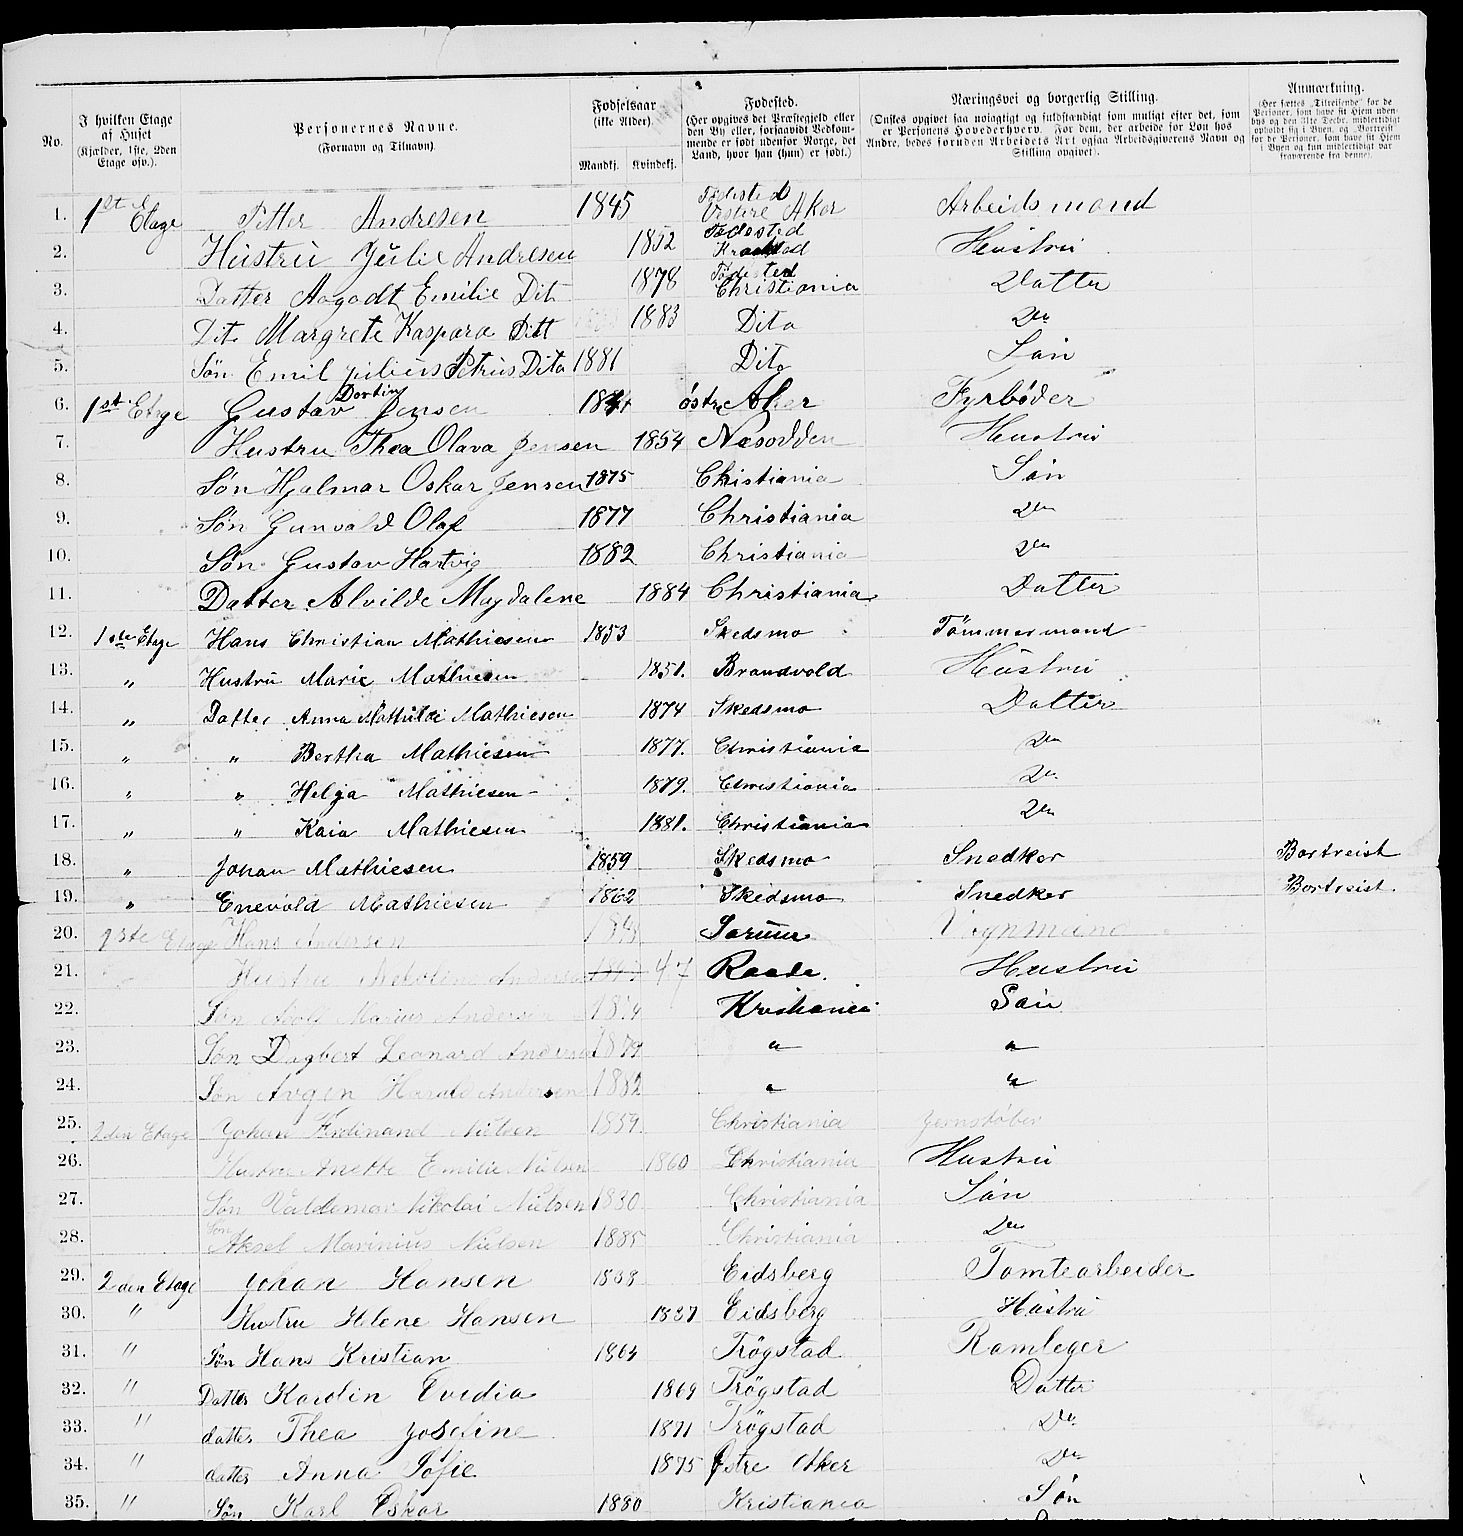 No. I hvilken Etage af Huset (Kjælder, 1ste, 2den Etage osv.). Personernes Navne. (Fornavn og Tilnavn). Fødselsaar (ikke Alder). Mandkj. Kvindekj. Fødested. (Her opgives det Præstegjeld eller den By eller, forsaavidt Vedkommende er født udenfor Norge, det Land, hvor han (hun) er født.) Næringsvei og borgerlig Stilling. (Ønskes opgivet saa nøiagtigt og fuldstændigt som muligt efter det, som er Personens Hovederhverv. For dem, der arbeide for Løn hos Andre, bedes foruden Arbeidets Art ogsaa Arbeidsgiverens Navn og Stilling opgivet). Anmærkning. (Her sættes „Tilreisende" for de Personer, som have sit Hjem udenbys og den 31te Decbr. midlertidigt opholdt sig i Byen, og „Bortreist" for de Personer, som have sit Hjem i Byen og kun midlertidigt var fraværende fra denne).
1. 1st Etage Pitter Andresen 1845 Fødested Vestre Aker Arbeidsmand
2. Hustru Julie Andresen 1852 Fødested Kraakstad Hustru
3. Datter Aagodt Emilie Dit 1878 Fødested Christiania Datter
4. Dit Margrete Kaspara Ditt 1883 Dito Do
5. Søn Emil julius Petrus Dito 1881 Dito Søn
6. 1st Etage Gustav Dortin Jensen østre Aker Fyrbøder
7. Hustru Thea Olava Jensen 1854 Næsodden Hustru
8. Søn Hjalmar Oskar Jensen 1875 Christiania Søn
9. Søn Gunvald Olaf 1877 Christiania Do
10. Søn Gustav Hartvig 1882 Christiania Do
11. Datter Alvilde Magdalene 1884 Christiania Datter
12. 1ste Etage Hans Christian Mathiesen 1853 Skedsmo Tömmermand
13. „ Hustru Marie Mathiesen 1851. Brandvold Hustru
14. „ Datter Anna Mathilde Mathiesen 1874 Skedsmo Datter
15. „ „ Bertha Mathiesen 1877. Christiania Do
16. „ „ Helga Mathiesen 1879. Christiania Do
17. „ „ Kaia Mathiesen 1881. Christiania Do
18. „ Johan Mathiesen 1859 Skedsmo Snedker Bortreist
19. „ Enevold Mathiesen 1862 Skedsmo Snedker Bortreist
20. 1ste Etage Hans Andersen Sørum Vognmand
21. Hustru Andersen 47 Raade. Hustru
22. Søn Adolf Marius Andersen Kristiania Søn
23. Søn Dagbert Leonard Andersen 1879 " "
24. Søn Avgen Harald Andersen 1882 " "
25. 2den Etage Johan Ferdinand Nielsen 1859 Christiania Jernstøber
26. Hustru Anette Emilie Nielsen 1860 Christiania Hustru
27. Søn Valdemar Nikolai Nielsen 1880 Christiania Søn
28. Søn Aksel Marinius Nielsen 1885 Christiania Do
29. 2den Etage Johan Hansen 1838 Eidsberg Tomtearbeider
30. " Hustru Helene Hansen 1837 Eidsberg Hustru
31. " Søn Hans Kristian 1864 Trögstad Ramleger
32. " Datter Karolin Ovidia 1869 Trögstad Datter
33. " datter Thea Josefine 1871 Trögstad Do
34. " datter Anna Sofie 1875 Østre Aker Do
35. " Søn Karl Oskar 1880 Kristiania Søn